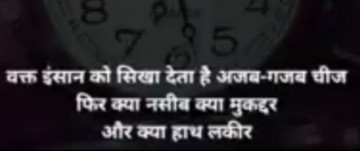 8
4
7
5
वक्त इंसान को सिखा देता है अजब-गजब चीज
फिर क्या नसीब क्या मुकद्दर
और क्या हाथ लकीर